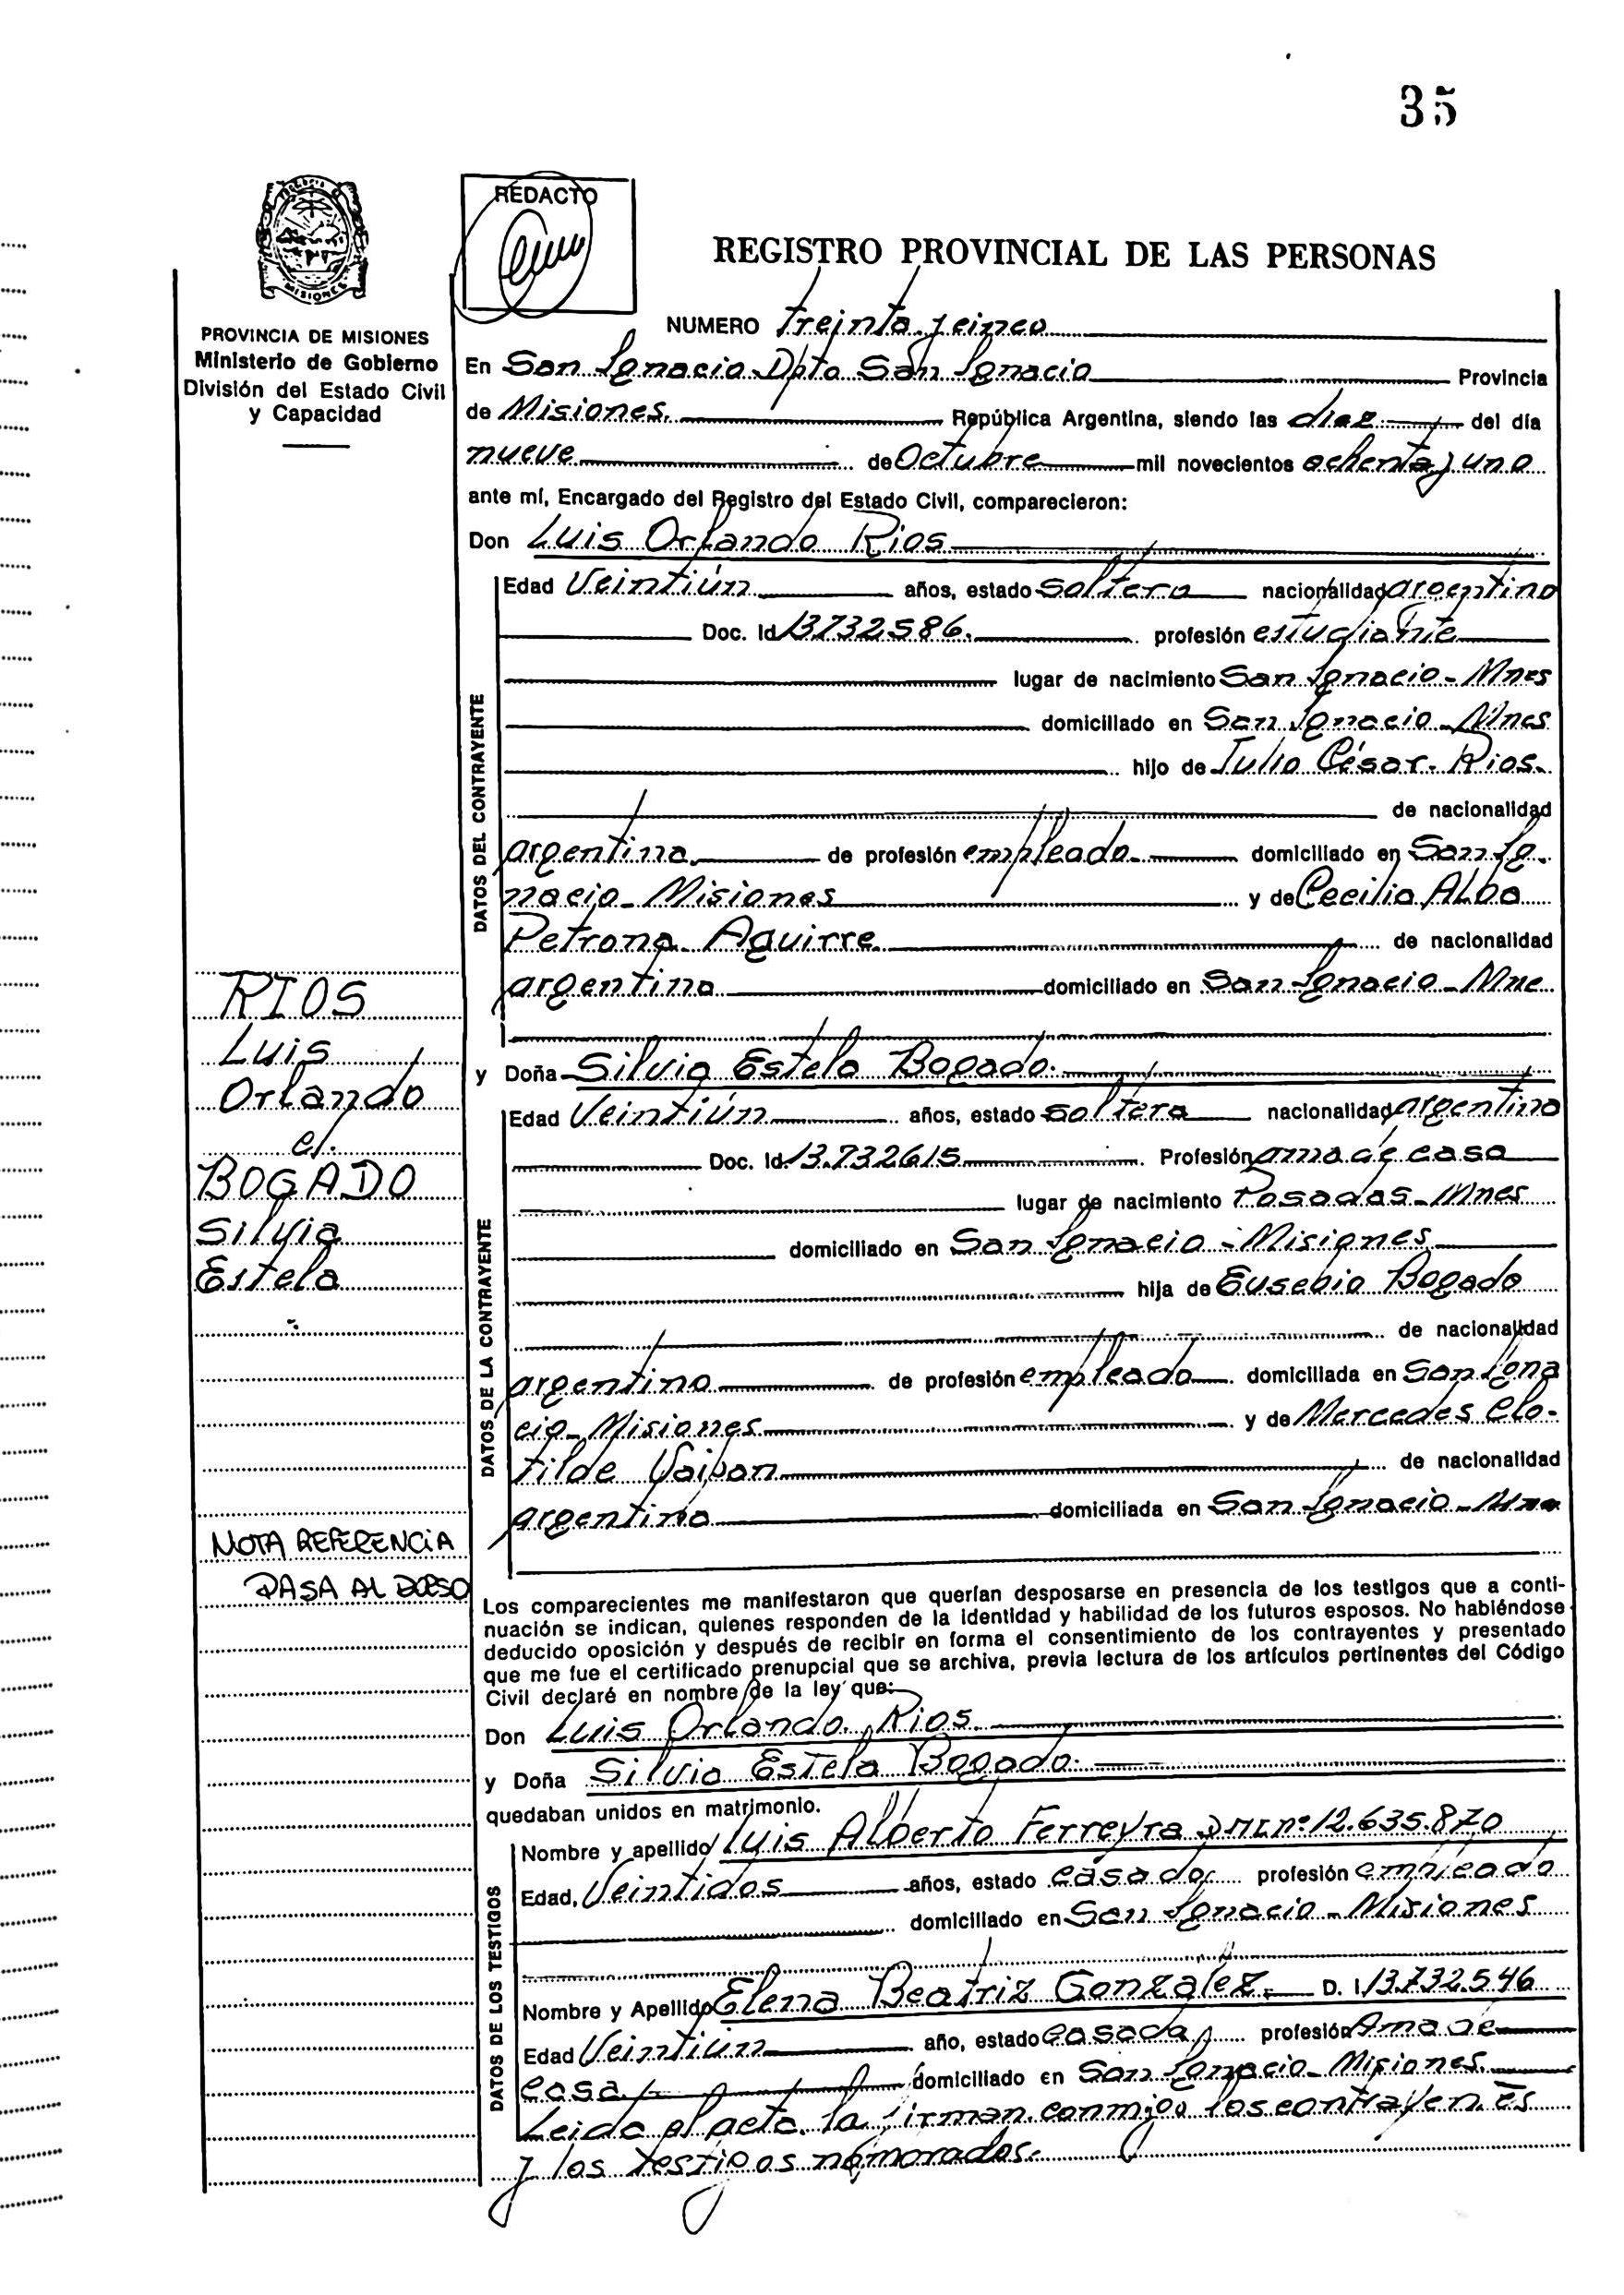 35
REDACTO
MISIONES
REGISTRO PROVINCIAL DE LAS PERSONAS
PROVINCIA DE MISIONES
Ministerio de Gobierno
División del Estado Civil
y Capacidad
NUMERO Treinta y cinco
En San Ignacio Dpto San Ignacio Provincia
de Misiones. República Argentina, siendo las diez del día
nueve de Octubre mil novecientos ochenta y uno
ante mí, Encargado del Registro del Estado Civil, comparecieron:
Don Luis Orlando Rios
DATOS DEL CONTRAYENTE
Edad Veintiún años, estado soltero nacionalidad argentino
Doc. Id 13732586. profesión estudiante
lugar de nacimiento San Ignacio - Mnes
domiciliado en San Ignacio - Mnes
hijo de Julio César Rios.
de nacionalidad
argentina de profesión empleado domiciliado en San Ig-
nacio - Misiones y de Cecilia Alba
Petrona Aguirre de nacionalidad
argentina domiciliado en San Ignacio - Mne
y Doña Silvia Estela Bogado.
DATOS DE LA CONTRAYENTE
Edad Veintiún años, estado soltera nacionalidad argentina
Doc. Id. 13.732615 Profesión ama de casa
lugar de nacimiento Posadas - Mnes
domiciliado en San Ignacio - Misiones
hija de Eusebio Bogado
de nacionalidad
argentina de profesión empleado domiciliada en San Igna
cio - Misiones y de Mercedes Clo-
tilde de nacionalidad
argentina domiciliada en San Ignacio
RIOS
Luis
Orlando
c/.
BOGADO
Silvia
Estela
NOTA REFERENCIA
PASA AL DORSO
Los comparecientes me manifestaron que querían desposarse en presencia de los testigos que a conti-
nuación se indican, quienes responden de la identidad y habilidad de los futuros esposos. No habiéndose
deducido oposición y después de recibir en forma el consentimiento de los contrayentes y presentado
que me fue el certificado prenupcial que se archiva, previa lectura de los artículos pertinentes del Código
Civil declaré en nombre de la ley que:
Don Luis Orlando Rios
y Doña Silvia Estela Bogado.
quedaban unidos en matrimonio.
DATOS DE LOS TESTIGOS
Nombre y apellido Luis Alberto Ferreyra DNI nº 12.635.870
Edad, Veintidos años, estado casado, profesión empleado
domiciliado en San Ignacio - Misiones
Nombre y Apellido Elena Beatriz Gonzalez D. I. 13.732.546
Edad Veintiún año, estado casada profesión Ama de
casa domiciliado en San Ignacio - Misiones
Leida el acta la firman conmigo los contrayentes
y los testigos nomorados.